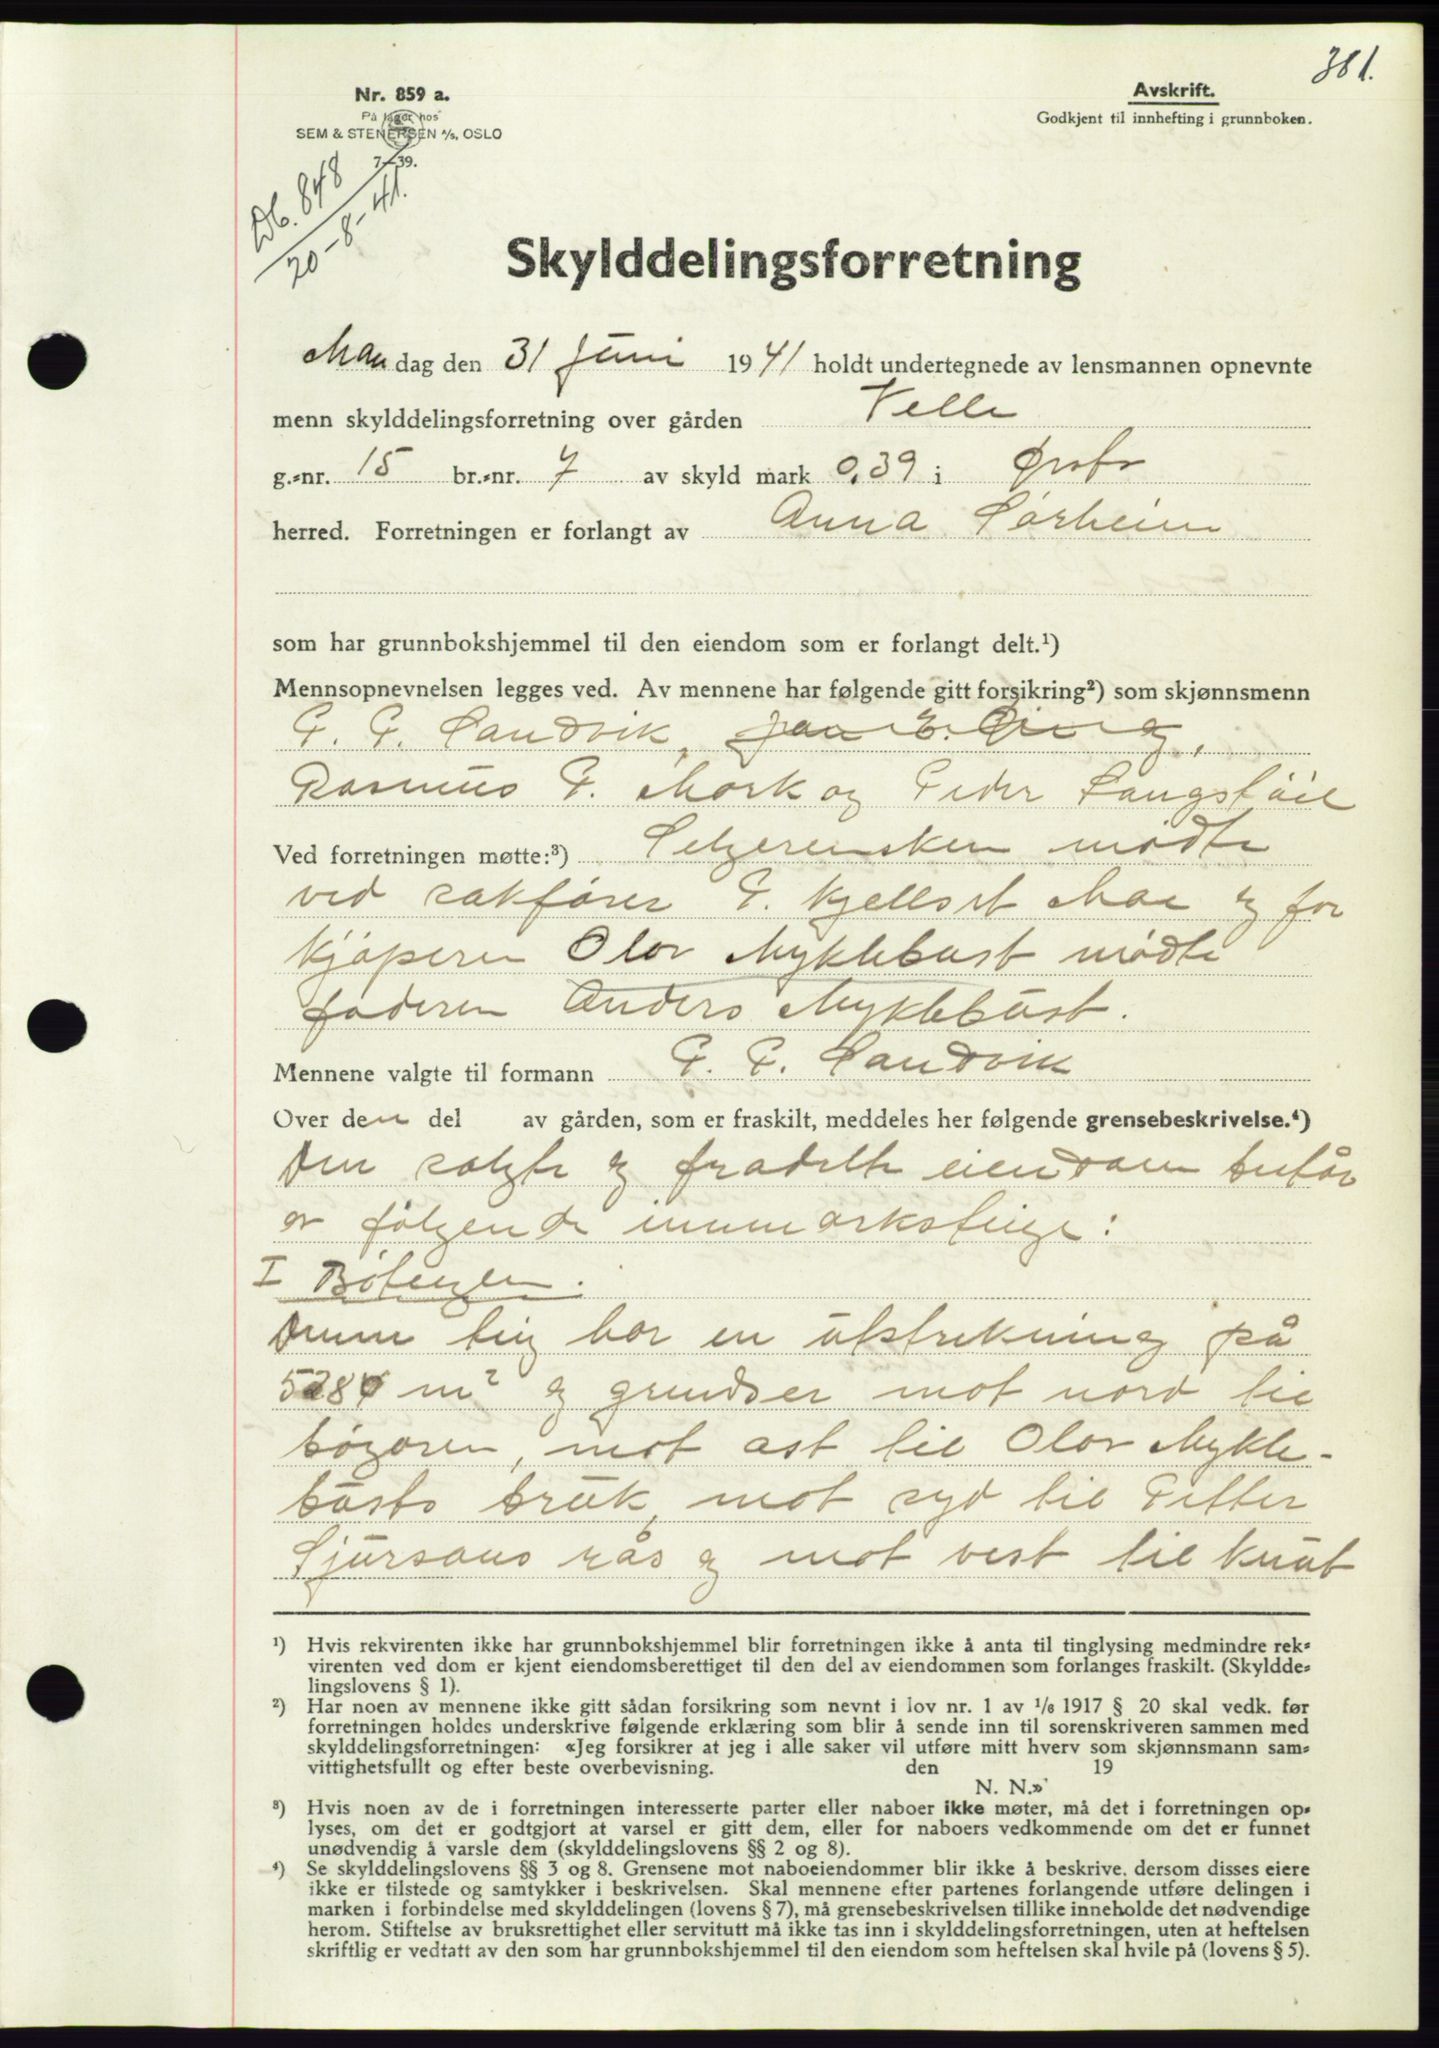 381.
Nr. 859 a.
På lager hos
SEM & STENERSEN A/S, OSLO
7—39.
Avskrift.
Godkjent til innhefting i grunnboken.
Db. 848
20-8-41.
Skylddelingsforretning
Mandag den 31 Juni 1941 holdt undertegnede av lensmannen opnevnte
menn skylddelingsforretning over gården Velle
g.-nr. 15 br.-nr. 7 av skyld mark 0,39 i Ørsta
herred. Forretningen er forlangt av Anna Sørheim
som har grunnbokshjemmel til den eiendom som er forlangt delt.¹)
Mennsopnevnelsen legges ved. Av mennene har følgende gitt forsikring²) som skjønnsmenn
P. P. Sandvik,
Rasmus P. Mork og Peder Langsføil
Ved forretningen møtte:³) Selgerensken mødte
ved sakfører P. Kjellset Moe og for
kjøperen Olav Myklebust mødte
faderen Anders Myklebust.
Mennene valgte til formann P. P. Sandvik
Over den del av gården, som er fraskilt, meddeles her følgende grensebeskrivelse.⁴)
Den solgte og fradelte eiendom består
av følgende innmarksteige:
I Bøteigen.
Denne teig har en utstrekning på
m² og grendser mot nord til
bøgaren, mot øst til Olav Mykle-
busts bruk, mot syd til Petter
Sjursons rås og mot vest til Knut
¹) Hvis rekvirenten ikke har grunnbokshjemmel blir forretningen ikke å anta til tinglysing medmindre rek-
virenten ved dom er kjent eiendomsberettiget til den del av eiendommen som forlanges fraskilt. (Skyldde-
lingslovens § 1).
²) Har noen av mennene ikke gitt sådan forsikring som nevnt i lov nr. 1 av 1/6 1917 § 20 skal vedk. før
forretningen holdes underskrive følgende erklæring som blir å sende inn til sorenskriveren sammen med
skylddelingsforretningen: «Jeg forsikrer at jeg i alle saker vil utføre mitt hverv som skjønnsmann sam-
vittighetsfullt og efter beste overbevisning. den 19
N. N.»
³) Hvis noen av de i forretningen interesserte parter eller naboer ikke møter, må det i forretningen op-
lyses, om det er godtgjort at varsel er gitt dem, eller for naboers vedkommende om det er funnet
unødvendig å varsle dem (skylddelingslovens §§ 2 og 8).
⁴) Se skylddelingslovens §§ 3 og 8. Grensene mot naboeiendommer blir ikke å beskrive, dersom disses eiere
ikke er tilstede og samtykker i beskrivelsen. Skal mennene efter partenes forlangende utføre delingen i
marken i forbindelse med skylddelingen (lovens § 7), må grensebeskrivelsen tillike inneholde det nødvendige
herom. Stiftelse av bruksrettighet eller servitutt må ikke tas inn i skylddelingsforretningen, uten at heftelsen
skriftlig er vedtatt av den som har grunnbokshjemmel til den eiendom som heftelsen skal hvile på (lovens § 5).